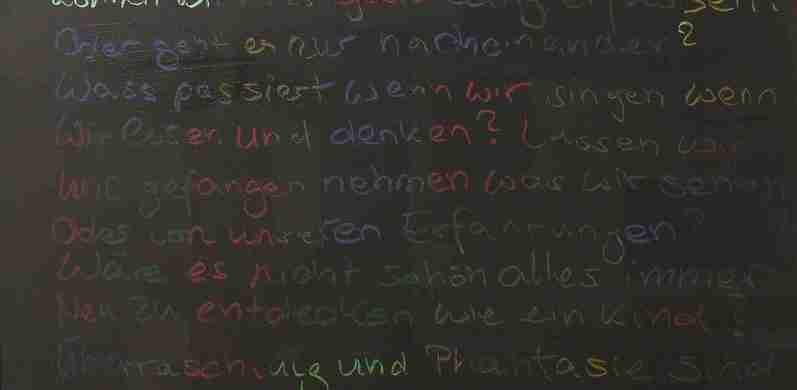 können wir
sein?
Oder geht er nur nacheinander?
Wass passiert wenn wir singen wenn
Wir Essen und denken? Lassen wir
uns gefangen nehmen was wir sehen
Oder von unseren Erfahrungen?
Wäre es nicht schön alles immer
Neu zu entdecken wie ein Kind?
Überraschung und Phantasie sind